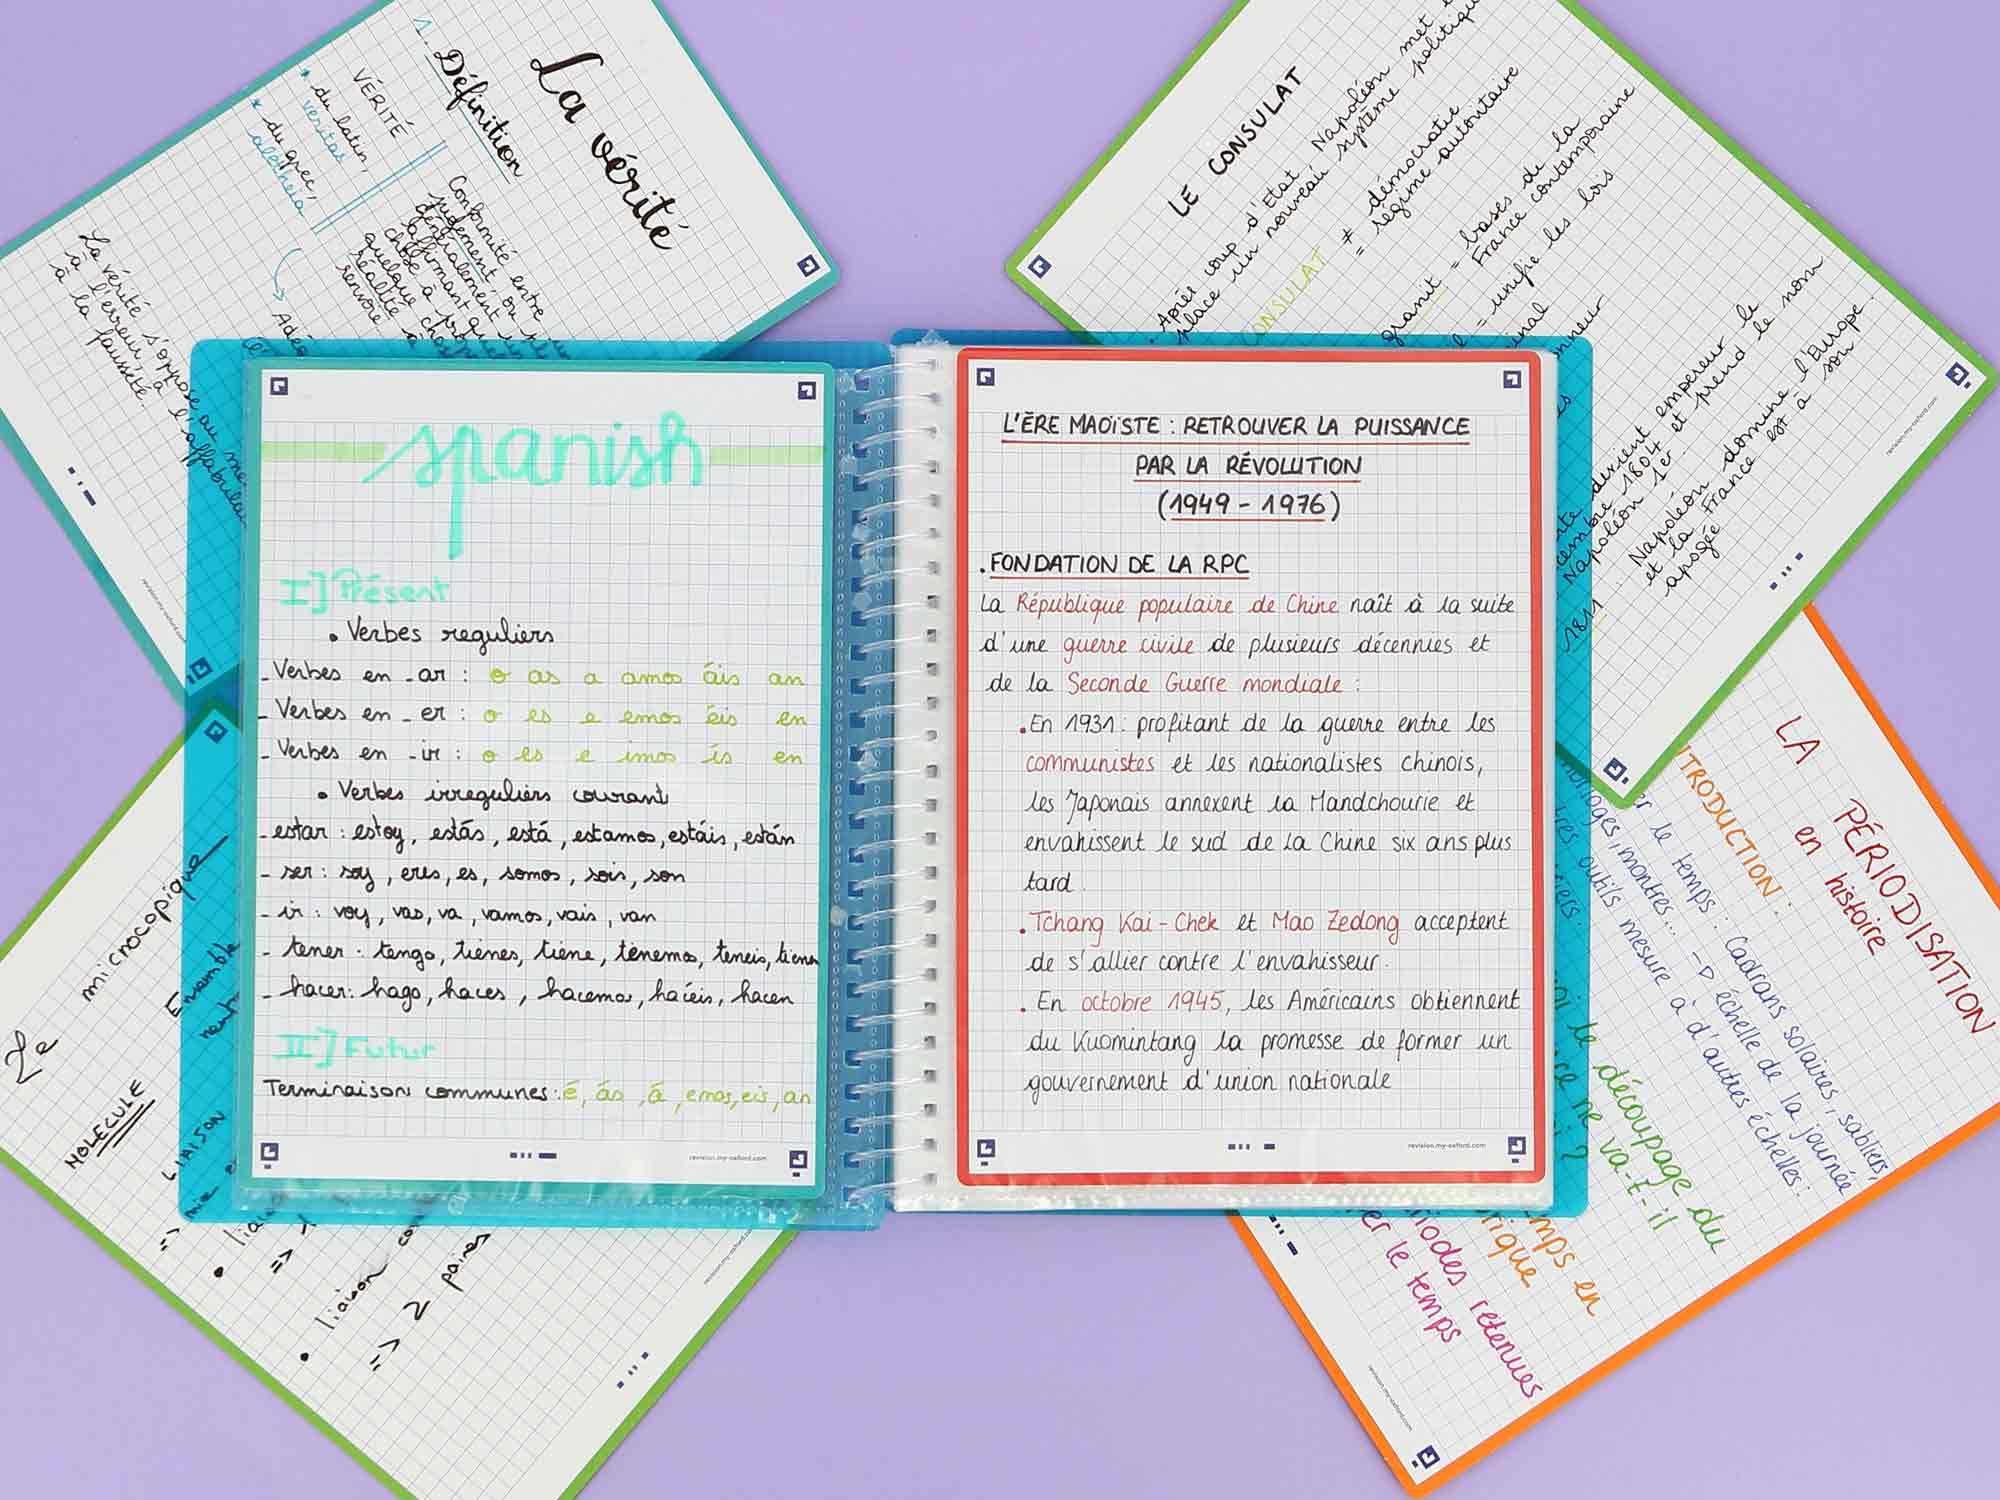 La vérité
1. Définition
VÉRITÉ
* du latin,
veritas,
* du grec,
aletheia
Conformité entre
jugement, ou
généralement
affirmant
chose à
quelque chose
réalité à
renvoie
La vérité s'oppose au
à l'erreur, à l'affabulation
à la fausseté.
LE CONSULAT
. Après coup d'Etat, Napoléon met
place un nouveau système politique
CONSULAT ≠ démocratie
= régime autoritaire
granit = bases de la
France contemporaine
= unifie les lois
devient empereur le
1804 et prend le nom
Napoléon 1er
1811 : Napoléon domine l'Europe
et la France est à son
apogée
revision.my-oxford.com
spanish
I] Présent
• Verbes reguliers
- Verbes en -ar : o as a amos áis an
- Verbes en -er : o es e emos éis en
- Verbes en -ir : o es e imos ís en
• Verbes irreguliers courant
- estar : estoy, estás, está, estamos, estáis, están
- ser : soy, eres, es, somos, sois, son
- ir : voy, vas, va, vamos, vais, van
- tener : tengo, tienes, tiene, tenemos, teneis, tienen
- hacer : hago, haces, hacemos, haceis, hacen
II] Futur
Terminaison communes : é, ás, á, emos, eis, an
revision.my-oxford.com
L'ÈRE MAOÏSTE : RETROUVER LA PUISSANCE
PAR LA RÉVOLUTION
(1949 - 1976)
. FONDATION DE LA RPC
La République populaire de Chine naît à la suite
d'une guerre civile de plusieurs décennies et
de la Seconde Guerre mondiale :
. En 1931 : profitant de la guerre entre les
communistes et les nationalistes chinois,
les Japonais annexent la Mandchourie et
envahissent le sud de la Chine six ans plus
tard.
. Tchang Kai-Chek et Mao Zedong acceptent
de s'allier contre l'envahisseur.
. En octobre 1945, les Américains obtiennent
du Kuomintang la promesse de former un
gouvernement d'union nationale
revision.my-oxford.com
Le microcopique
MOLECULE
Ensemble
LIAISON
=>
• liaison
=> 2 paires
revision.my-oxford.com
LA PÉRIODISATION
en histoire
INTRODUCTION :
le temps : Cadrans solaires, sabliers,
horloges, montres... -> échelle de la journée
outils mesure à d'autres échelles :
le découpage du
ne va-t-il
?
temps en
périodes retenues
le temps
revision.my-oxford.com